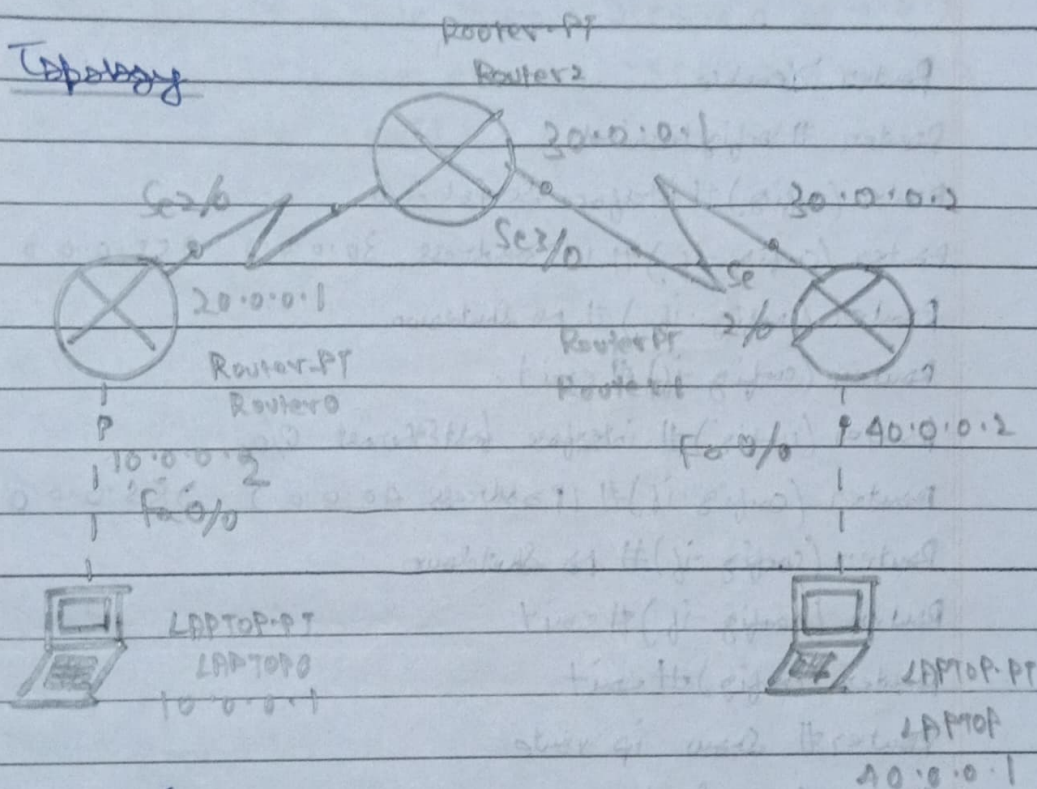 Topology
Router-PT
Router2
30.0.0.1
Se2/0
30.0.0.2
Se3/0
Se
2/0
20.0.0.1
Router-PT
Router0
Router PT
P
10.0.0.2
Fa 0/0
Fa 0/0
40.0.0.2
LAPTOP-PT
LAPTOP0
10.0.0.1
LAPTOP-PT
LAPTOP
40.0.0.1